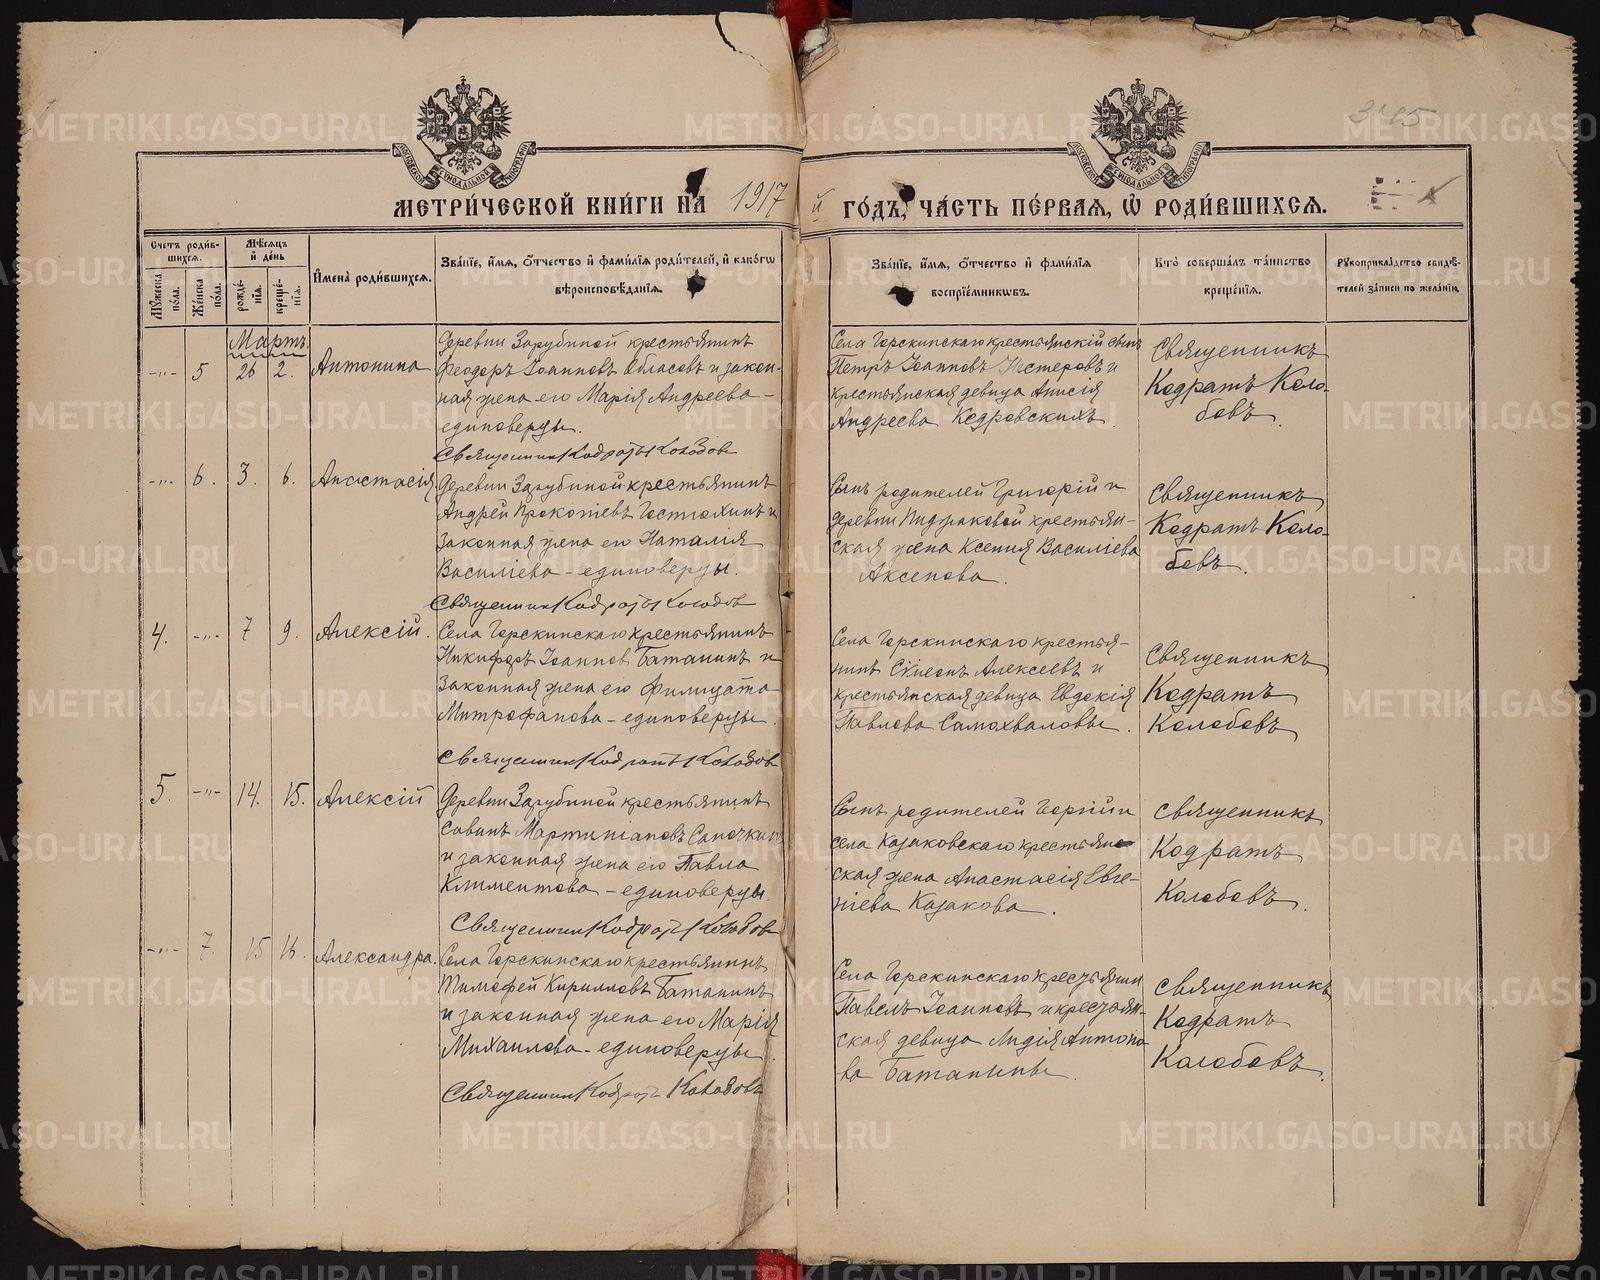 345
МЕТРИ́ЧЕСКОЙ КНИ́ГИ НА 1917 й ГО́ДЪ, ЧА́СТЬ ПЕ́РВАЯ, Ѡ РОДИ́ВШИХСЯ.
Счетъ роди́в-
шихся.
Мѣсяцъ
и де́нь
Му́жеска по́ла.
Же́нска по́ла.
рожде́-
нїя.
креще́-
нїя.
Имена̀ роди́вшихся.
Зва́нїе, и́мя, о́тчество и фами́лїя роди́телей, и како́гѡ
вѣроисповѣ́данїя.
Зва́нїе, и́мя, о́тчество и фами́лїя
воспрїе́мникѡвъ.
Кто̀ соверша́лъ та́инство
креще́нїя.
Рукоприкла́дство свидѣ́-
телей за́писи по жела́нїю.
Мартъ.
-"- 5 26 2. Антонина
Деревни Зарубиной крестьянинъ
Феодоръ Іоанновъ Обласовъ и закон-
ная жена его Марія Андреева -
единоверцы.
Священник Кодратъ Колобов
Села Горскинскаго крестьянскій сынъ
Петръ Іоанновъ Нестеровъ и
крестьянская девица Анисія
Андреева Кедровскихъ.
Священникъ
Кодратъ Коло-
бовъ.
-"- 6. 3. 6. Анастасія
Деревни Зарубиной крестьянинъ
Андрей Прокопіевъ Гостюхинъ и
законная жена его Наталія
Василіева - единоверцы.
Священник Кодратъ Колобов
Сынъ родителей Григорій и
деревни Пиджаковой крестьян-
ская жена Ксения Василіева
Аксенова.
Священникъ
Кодратъ Коло-
бовъ.
4. -"- 7 9. Алексій.
Села Горскинскаго крестьянинъ
Никифоръ Іоаннов Батанинъ и
законная жена его Филицата
Митрофанова - единоверцы.
Священник Кодратъ Колобов
Села Горскинскаго крестья-
нинъ Сѵмеонъ Алексеевъ и
крестьянская девица Евдокія
Павлова Самохваловы.
Священникъ
Кодратъ
Колобовъ
5. -"- 14. 15. Алексій
Деревни Зарубиной крестьянинъ
Савинъ Мартиніановъ Сапочкин
и законная жена его Павла
Климентова - единоверцы.
Священник Кодратъ Колобов
Сынъ родителей Георгій и
села Казаковскаго крестьян-
ская жена Анастасія Евге-
ніева Казакова.
Священникъ
Кодратъ
Колобовъ.
-"- 7. 15 16. Александра.
Села Горскинскаго крестьянинъ
Тимофей Кирилловъ Батанинъ
и законная жена его Марія
Михаилова - единоверцы.
Священник Кодратъ Колобовъ
Села Горскинскаго крестьянин
Павелъ Іоанновъ и крестьян-
ская девица Лидія Антоно-
ва Батанины.
Священникъ
Кодратъ
Колобовъ.